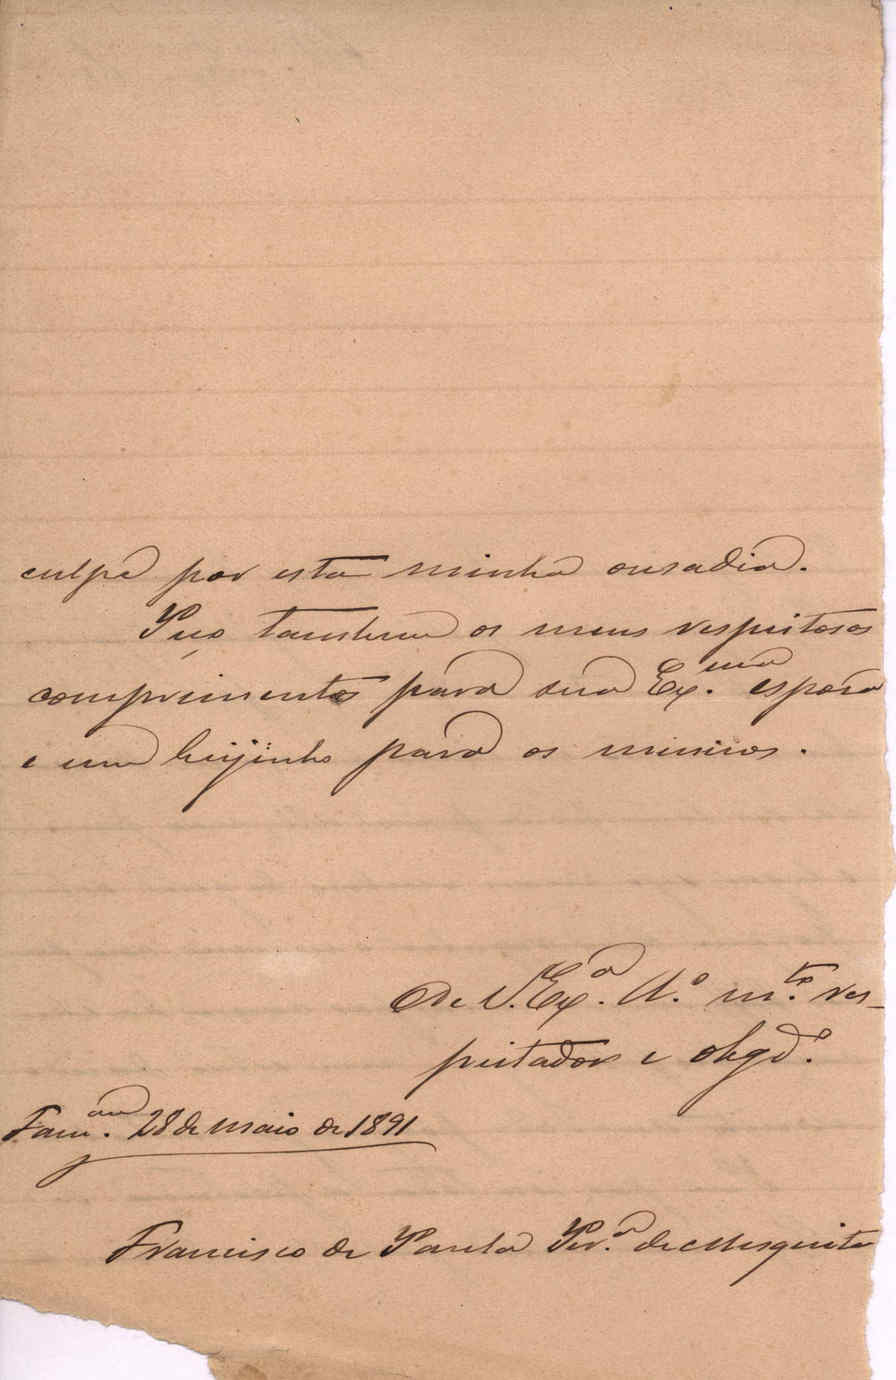 culpa por esta minha ousadia.
Peço tambem os meus respeitosos
comprimentos para sua Ex.ma esposa
e um beijinho para os meninos.
De V. Ex.a A.o m.to res-
peitador e obgd.o
Fam.am 28 de Maio de 1891
Francisco de Paula Per.a de Mesquita